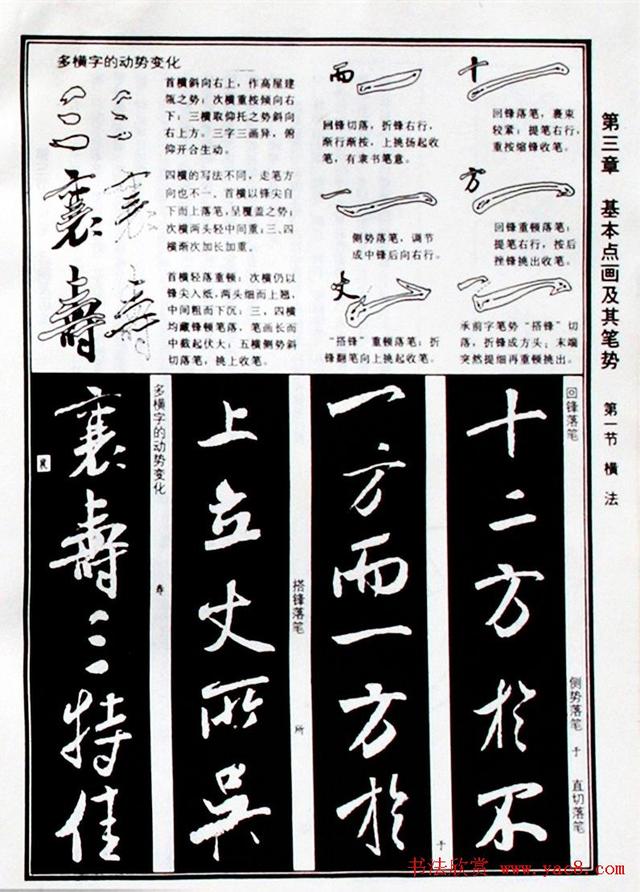 第三章 基本点画及其笔势 第一节 横法
十
回锋落笔,裹束
较紧;提笔右行,
重按缩锋收笔。
方
回锋重顿落笔;
提笔右行,按后
挫锋挑出收笔。
承前字笔势“搭锋”切
落,折锋成方头;末端
突然提细再重顿挑出。
而
回锋切落,折锋右行,
渐行渐按,上挑扬起收
笔,有隶书笔意。
一
侧势落笔,调节
成中锋后向右行。
丈
“搭锋”重顿落笔;折
锋翻笔向上挑起收笔。
多横字的动势变化
首横斜向右上,作高屋建
瓴之势;次横重按倾向右
下;三横取仰托之势斜向
右上方。三字三画异,俯
仰开合生动。
襄
四横的写法不同,走笔方
向也不一。首横以锋尖自
下而上落笔,呈覆盖之势;
次横两头轻中间重;三、四
横渐次加长加重。
壽
首横轻落重顿;次横仍以
锋尖入纸,两头细而上翘,
中间粗而下沉;三、四横
均藏锋顿笔落,笔画长而
中截起伏大;五横侧势斜
切落笔,挑上收笔。
回锋落笔
侧势落笔
于
直切落笔
十二方於不
一方而一方於
于
搭锋落笔
所
上立丈所吳
多横字的动势变化
寿
襄壽三特佳
襄
书法欣赏 www.yac8.com